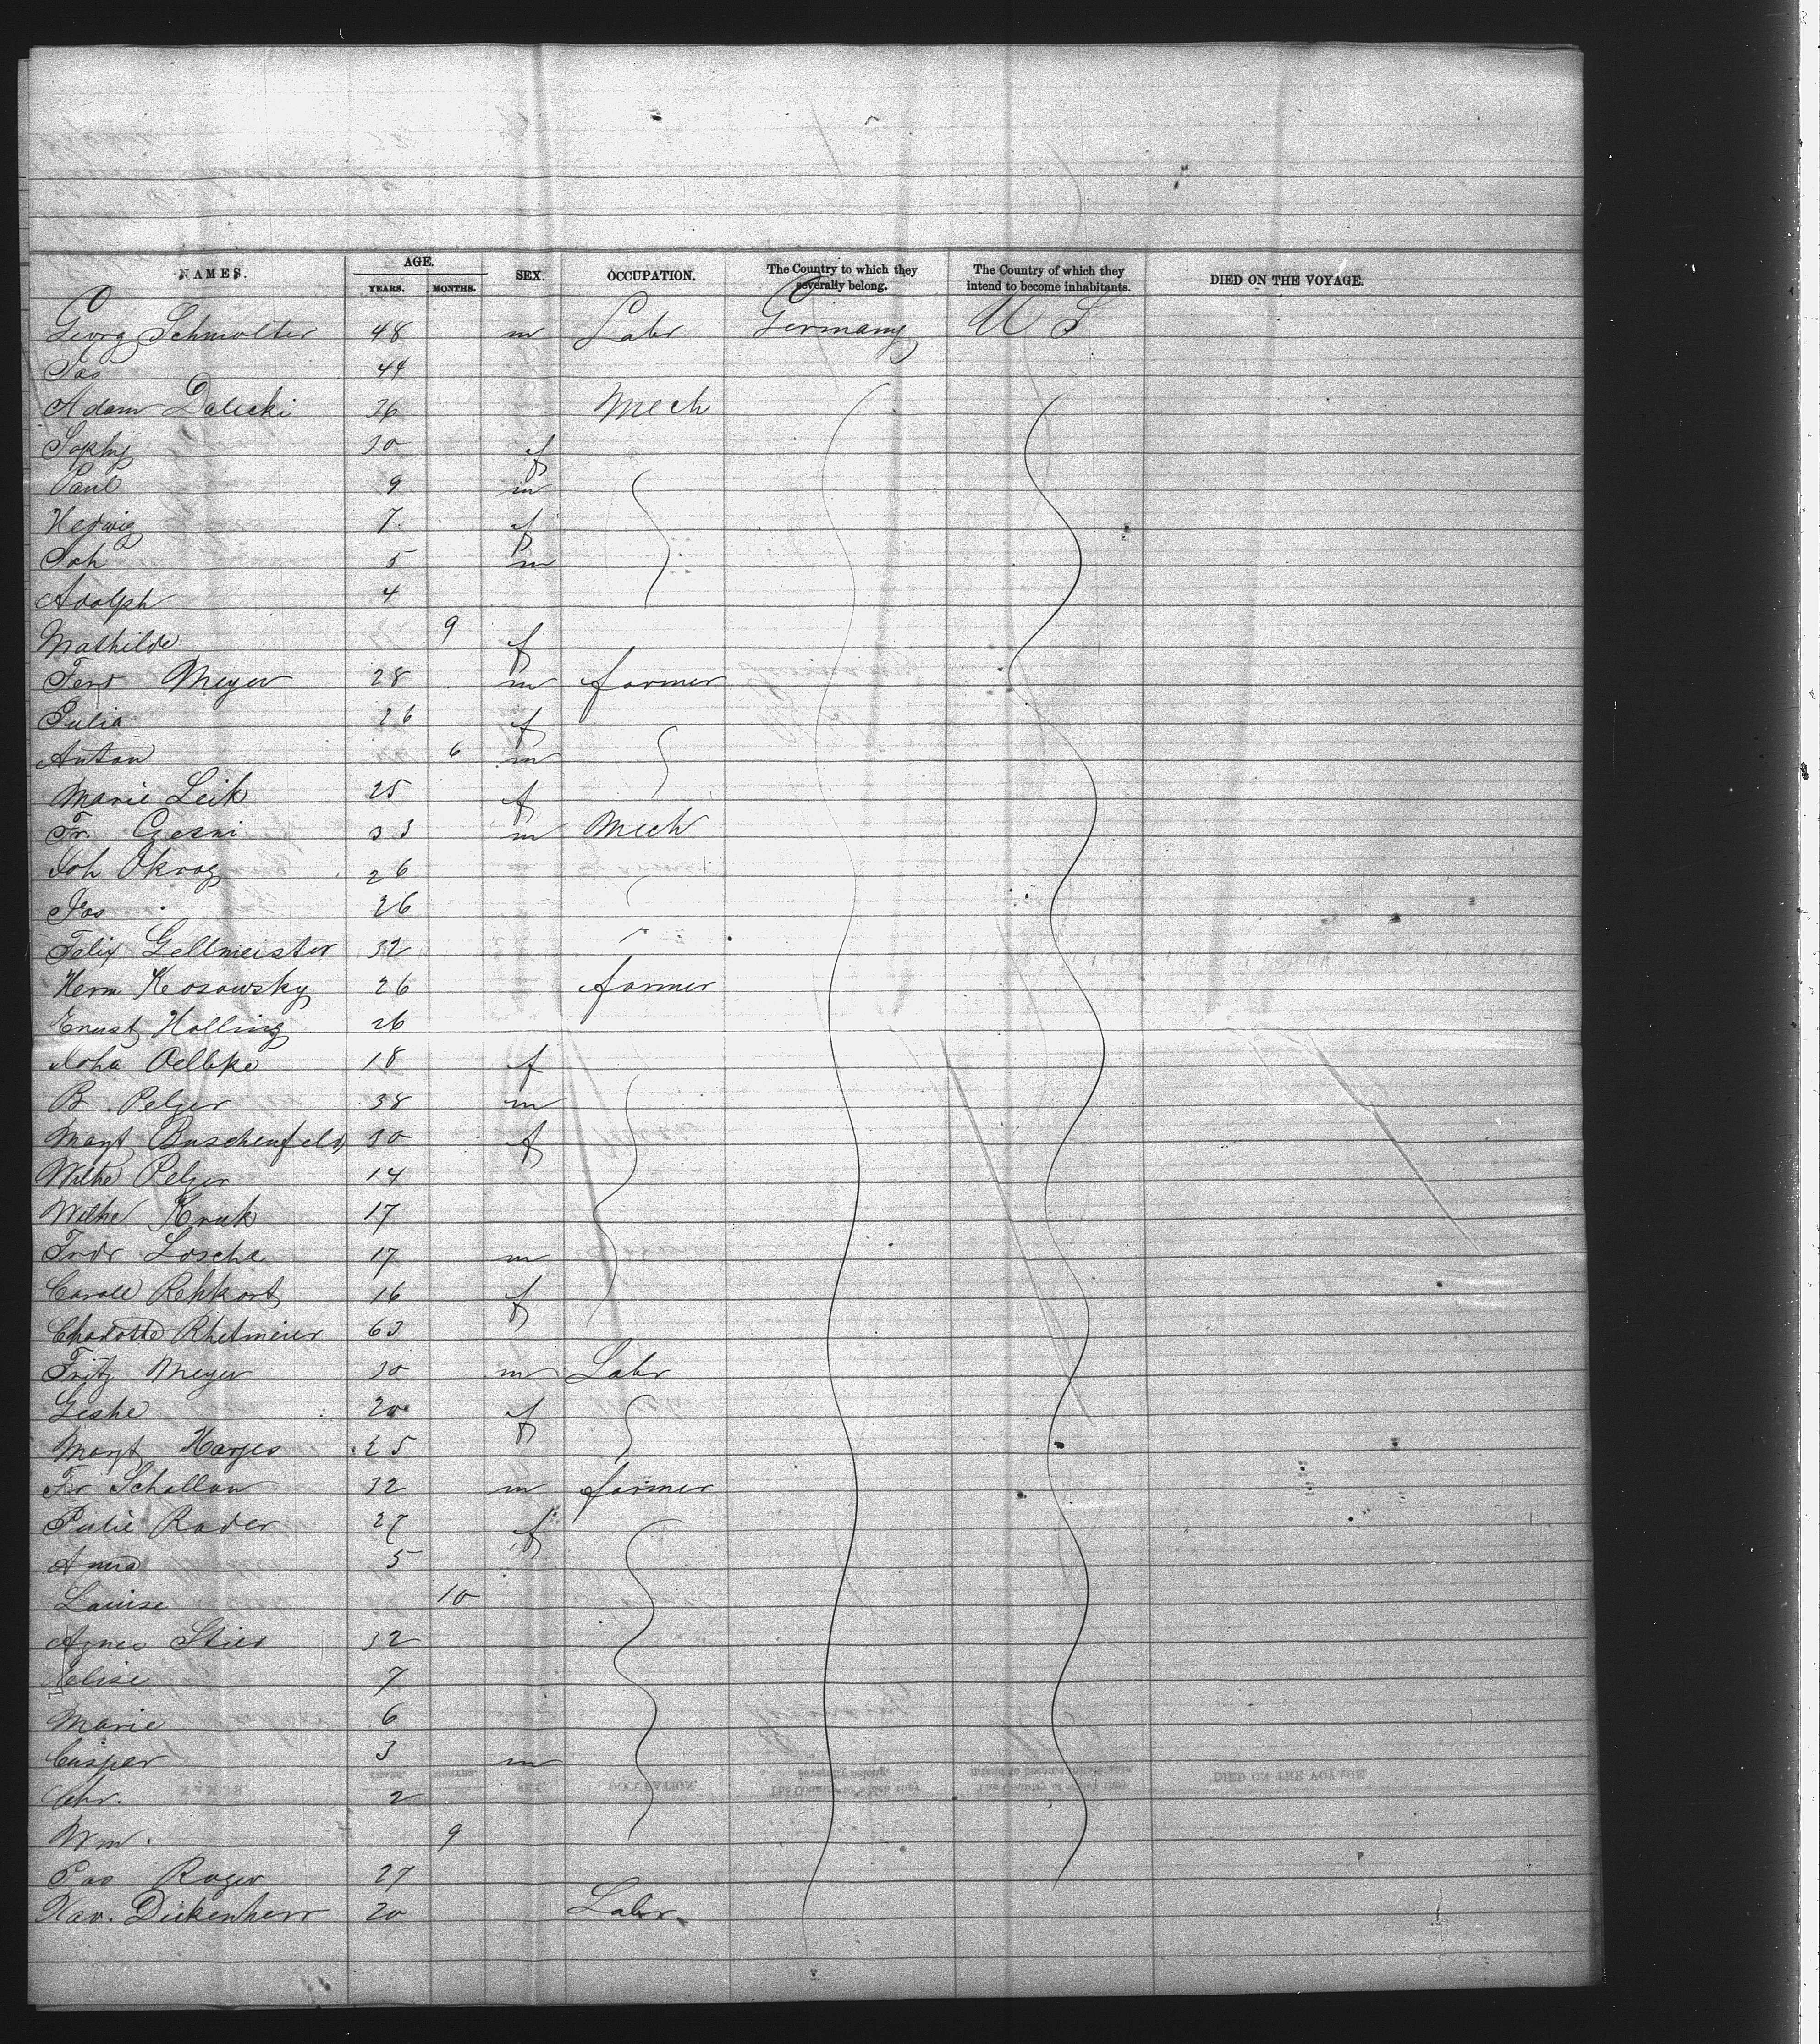 NAMES. AGE. YEARS. MONTHS. SEX. OCCUPATION. The Country to which they severally belong. The Country of which they intend to become inhabitants. DIED ON THE VOYAGE.
Georg Schmolter 48 m Labr Germany U S
Jas 44
Adam Dalecki 26 Mech
Sophy 30 f
Paul 9 m
Hedwig 7 f
Joh 5 m
Adolph 4
Mathilde 9 f
Ferd Meyer 28 m farmer
Julia 26 f
Anton 6 m
Marie Leik 25 f
Fr. Czerni 33 m Mech
Joh Okrog 26
Jos 26
Felix Gellmeister 32
Herm Kosowsky 26 farmer
Ernst Holling 26
Joha Oelbke 18 f
B. Pelzer 38 m
Margt Buschenfeld 30 f
Wilhe Pelzer 14
Wilhe Kruk 17
Fredr Losche 17 m
Carole Rehkort 16 f
Charlotte Rhetmeier 63
Fritz Meyer 30 m Labr
Geshe 20 f
Margt Harjes 25
Fr Schallow 32 m farmer
Julie Rader 27 f
Anna 5
Louise 10
Agnes Stier 32
Elise 7
Marie 6
Casper 3 m
Chr. 2
Wm. 9
Jas Roger 27
Xav. Dickenherr 20 Labr.